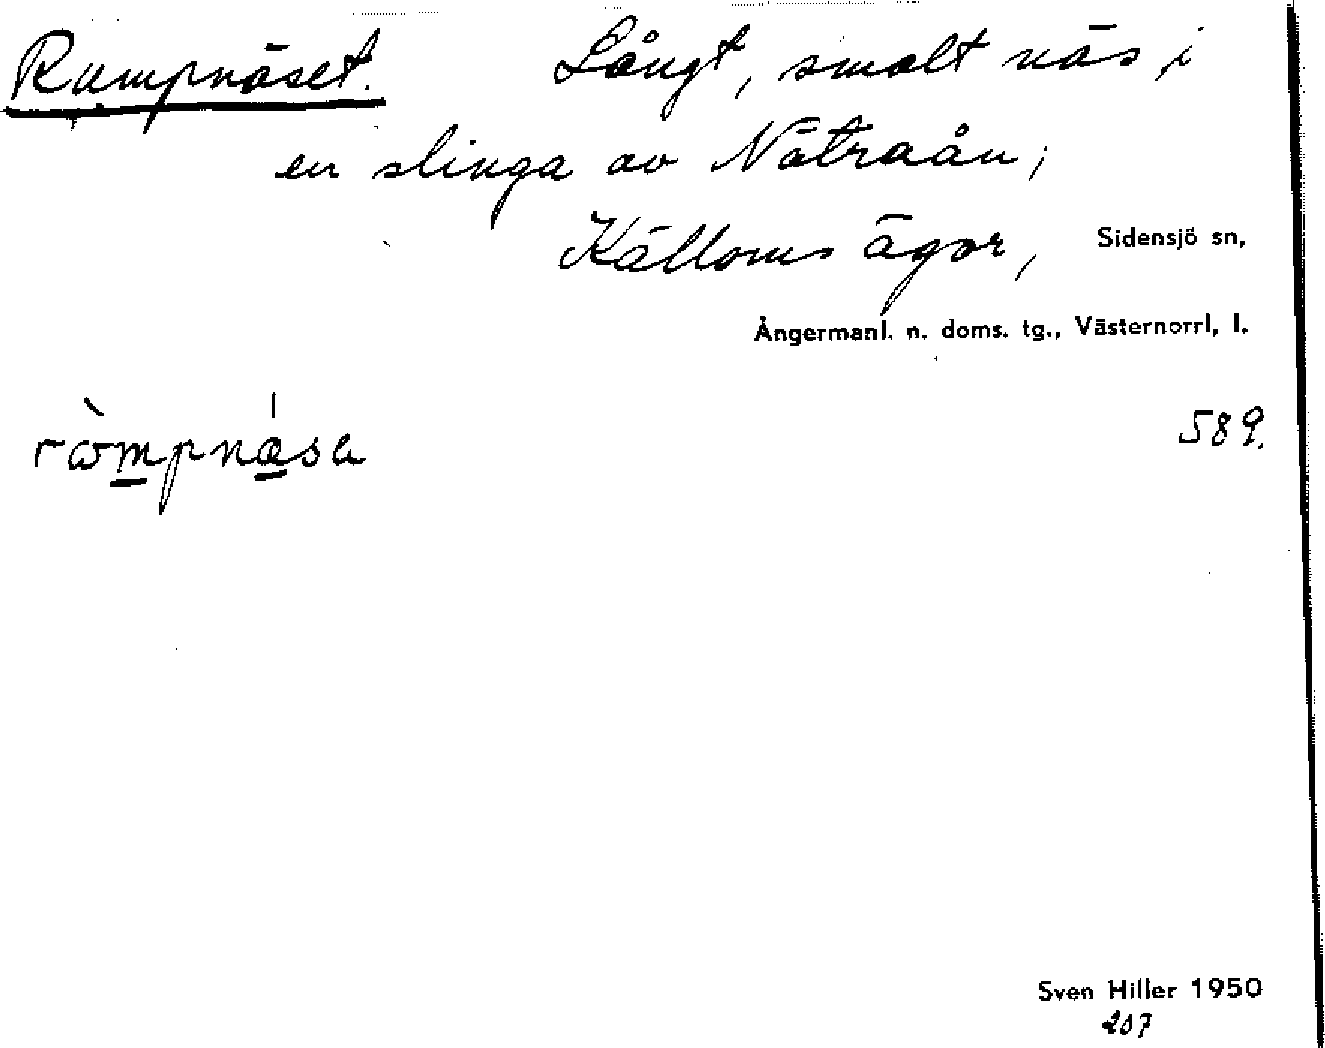 Rumpnäset. Långt, smalt näs i
en slinga av Nätraån;
Källoms ägor, Sidensjö sn,
Ångermanl. n. doms. tg., Västernorrl, l.
589.
Sven Hiller 1950
207